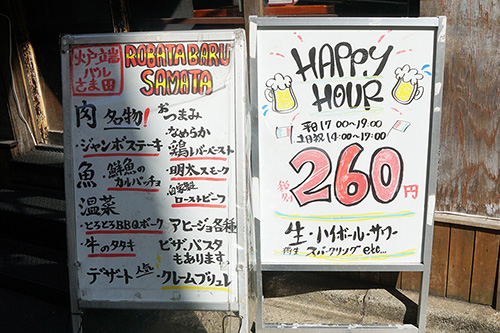 炉端
バル
さま田
ROBATA BARU
SAMATA
肉 名物!
・ジャンボステーキ
魚 ・鮮魚の
カルパッチョ
温菜
・とろとろBBQポーク
・牛のタタキ
おつまみ
・なめらか
鶏レバーペースト
・明太スモーク
・自家製
ローストビーフ
アヒージョ各種
ピザパスタ
もあります。
デザート 人気 ・クレームブリュレ
HAPPY
HOUR
平日17:00〜19:00
土日祝14:00〜19:00
260円
生・ハイボール・サワー
スパークリング etc...